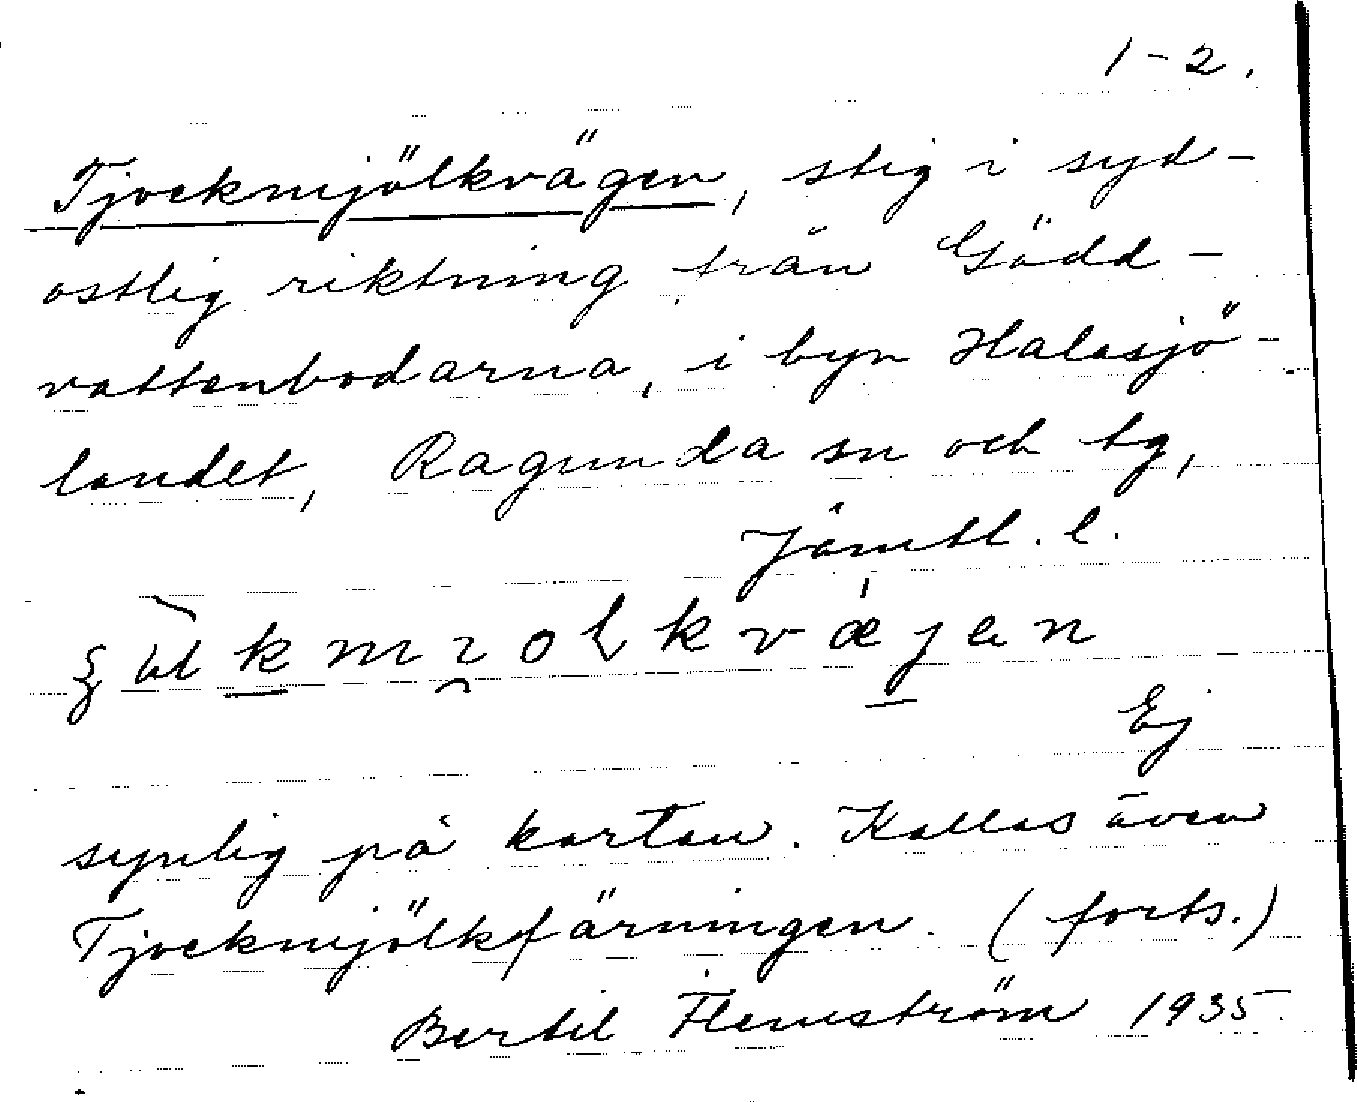 1-2.
Tjockmjölkvägen, stig i syd-
ostlig riktning från Gödd-
vattenbodarna, i byn Halasjö-
landet, Ragunda sn och tg,
Jämtl. l.
Ej
synlig på kartan. Kallas även
Tjockmjölkfärningen. (forts.)
Bertil Flemström 1935